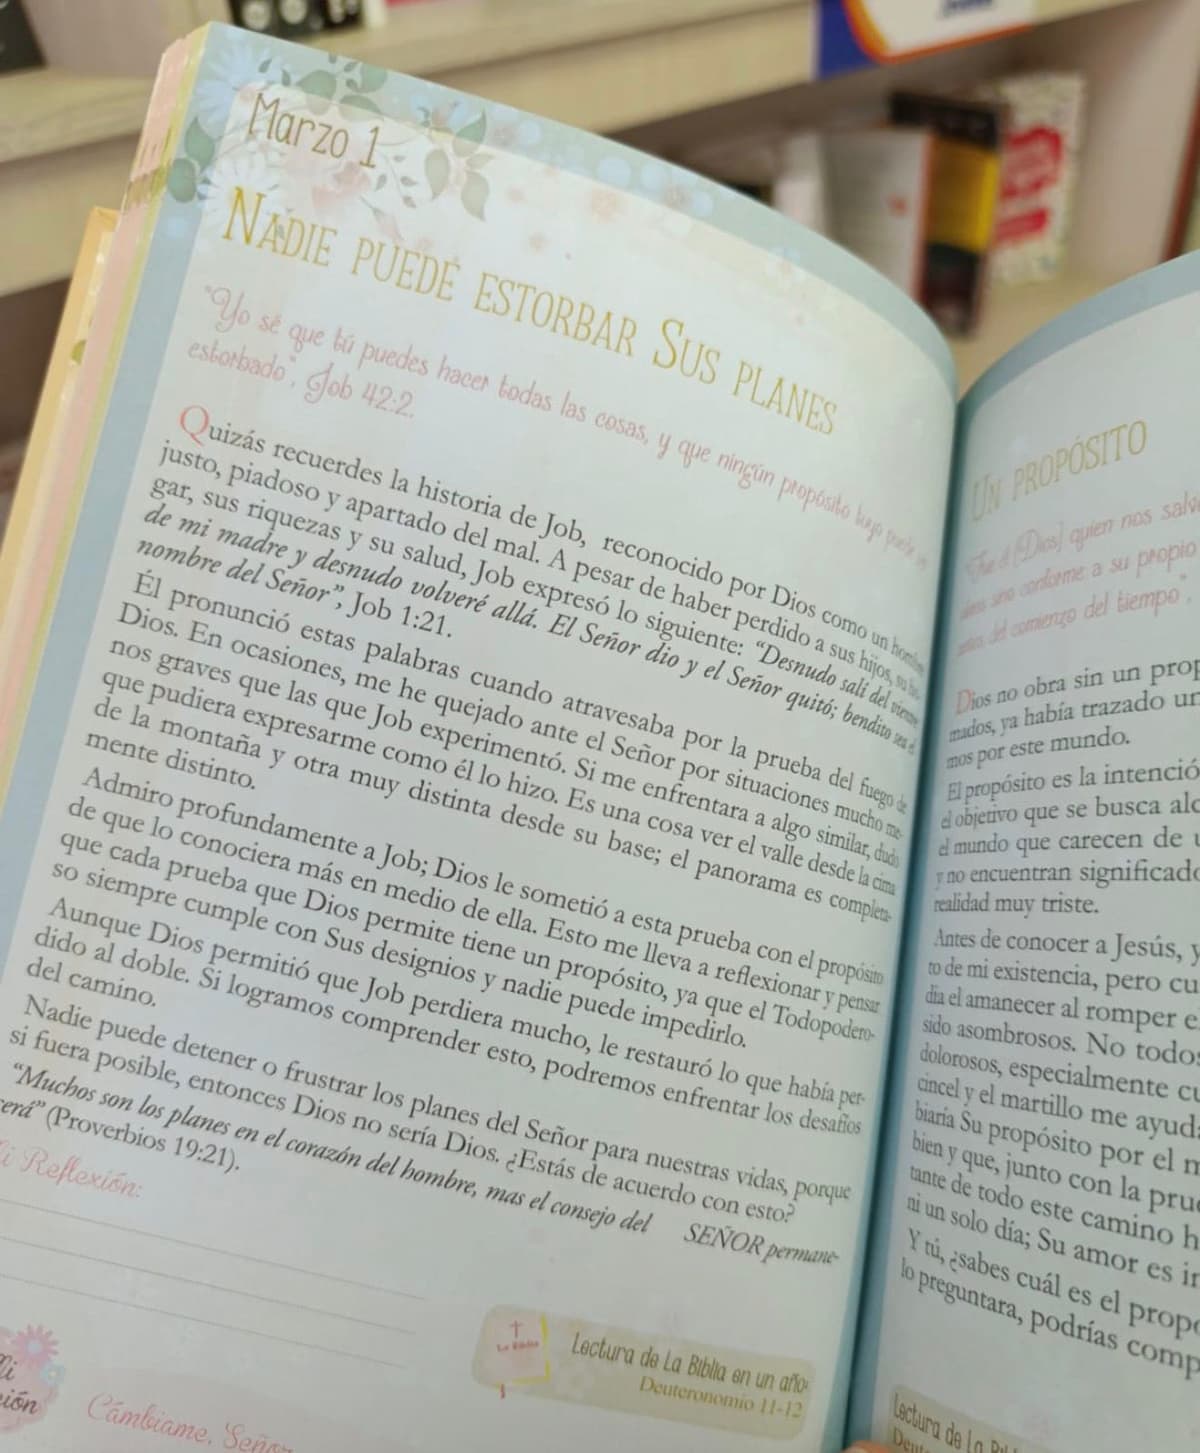 Marzo 1
NADIE PUEDE ESTORBAR SUS PLANES
"Yo sé que tú puedes hacer todas las cosas, y que ningún propósito tuyo puede ser
estorbado", Job 42:2.
Quizás recuerdes la historia de Job, reconocido por Dios como un hombre
justo, piadoso y apartado del mal. A pesar de haber perdido a sus hijos, su ho-
gar, sus riquezas y su salud, Job expresó lo siguiente: "Desnudo salí del vientre
de mi madre y desnudo volveré allá. El Señor dio y el Señor quitó; bendito sea el
nombre del Señor", Job 1:21.
Él pronunció estas palabras cuando atravesaba por la prueba del fuego de
Dios. En ocasiones, me he quejado ante el Señor por situaciones mucho me-
nos graves que las que Job experimentó. Si me enfrentara a algo similar, dudo
que pudiera expresarme como él lo hizo. Es una cosa ver el valle desde la cima
de la montaña y otra muy distinta desde su base; el panorama es completa-
mente distinto.
Admiro profundamente a Job; Dios le sometió a esta prueba con el propósito
de que lo conociera más en medio de ella. Esto me lleva a reflexionar y pensar
que cada prueba que Dios permite tiene un propósito, ya que el Todopodero-
so siempre cumple con Sus designios y nadie puede impedirlo.
Aunque Dios permitió que Job perdiera mucho, le restauró lo que había per-
dido al doble. Si logramos comprender esto, podremos enfrentar los desafíos
del camino.
Nadie puede detener o frustrar los planes del Señor para nuestras vidas, porque
si fuera posible, entonces Dios no sería Dios. ¿Estás de acuerdo con esto?
"Muchos son los planes en el corazón del hombre, mas el consejo del SEÑOR permane-
cerá" (Proverbios 19:21).
Mi Reflexión:
La Biblia
Lectura de La Biblia en un año:
Deuteronomio 11-12
Cámbiame, Señor
UN PROPÓSITO
Fue él [Dios] quien nos salvó
sino conforme a su propio
antes del comienzo del tiempo",
Dios no obra sin un prop
mados, ya había trazado un
mos por este mundo.
El propósito es la intenció
el objetivo que se busca alc
el mundo que carecen de u
y no encuentran significado
realidad muy triste.
Antes de conocer a Jesús, y
to de mi existencia, pero cu
día el amanecer al romper e
sido asombrosos. No todos
dolorosos, especialmente cu
cincel y el martillo me ayuda
biaría Su propósito por el m
bien y que, junto con la prue
tante de todo este camino h
ni un solo día; Su amor es in
Y tú, ¿sabes cuál es el propó
lo preguntara, podrías comp
Lectura de La Bi
Deut